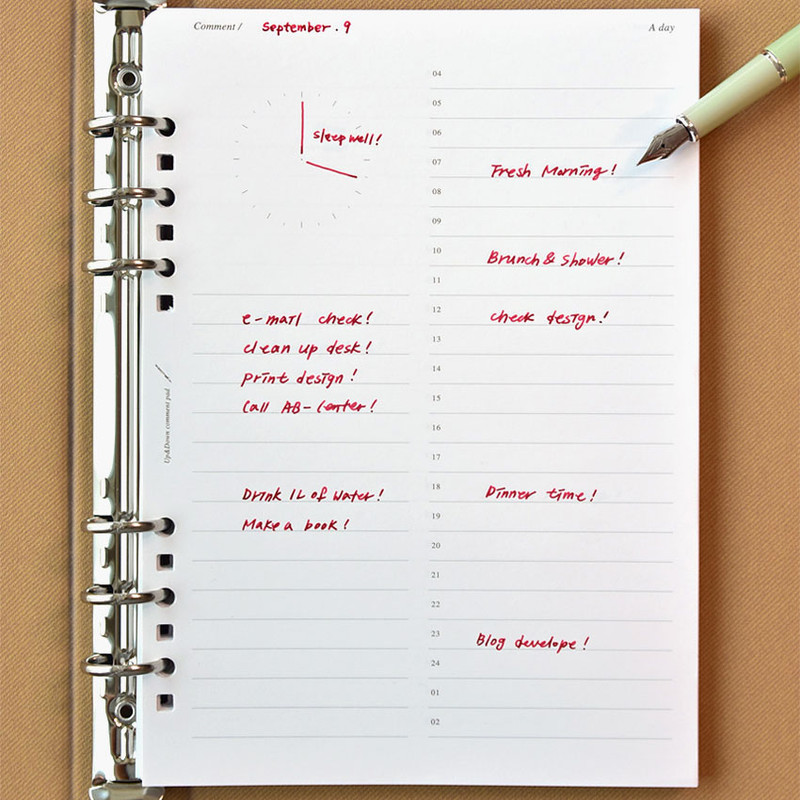 Comment / September . 9
A day
sleep well!
e-mail check!
clean up desk!
print design!
Call AB-Center!
Drink 1L of Water!
Make a book!
Up&Down comment pad
04
05
06
07 Fresh Morning!
08
09
10 Brunch & Shower!
11
12 check design!
13
14
15
16
17
18 Dinner time!
19
20
21
22
23 Blog develope!
24
01
02